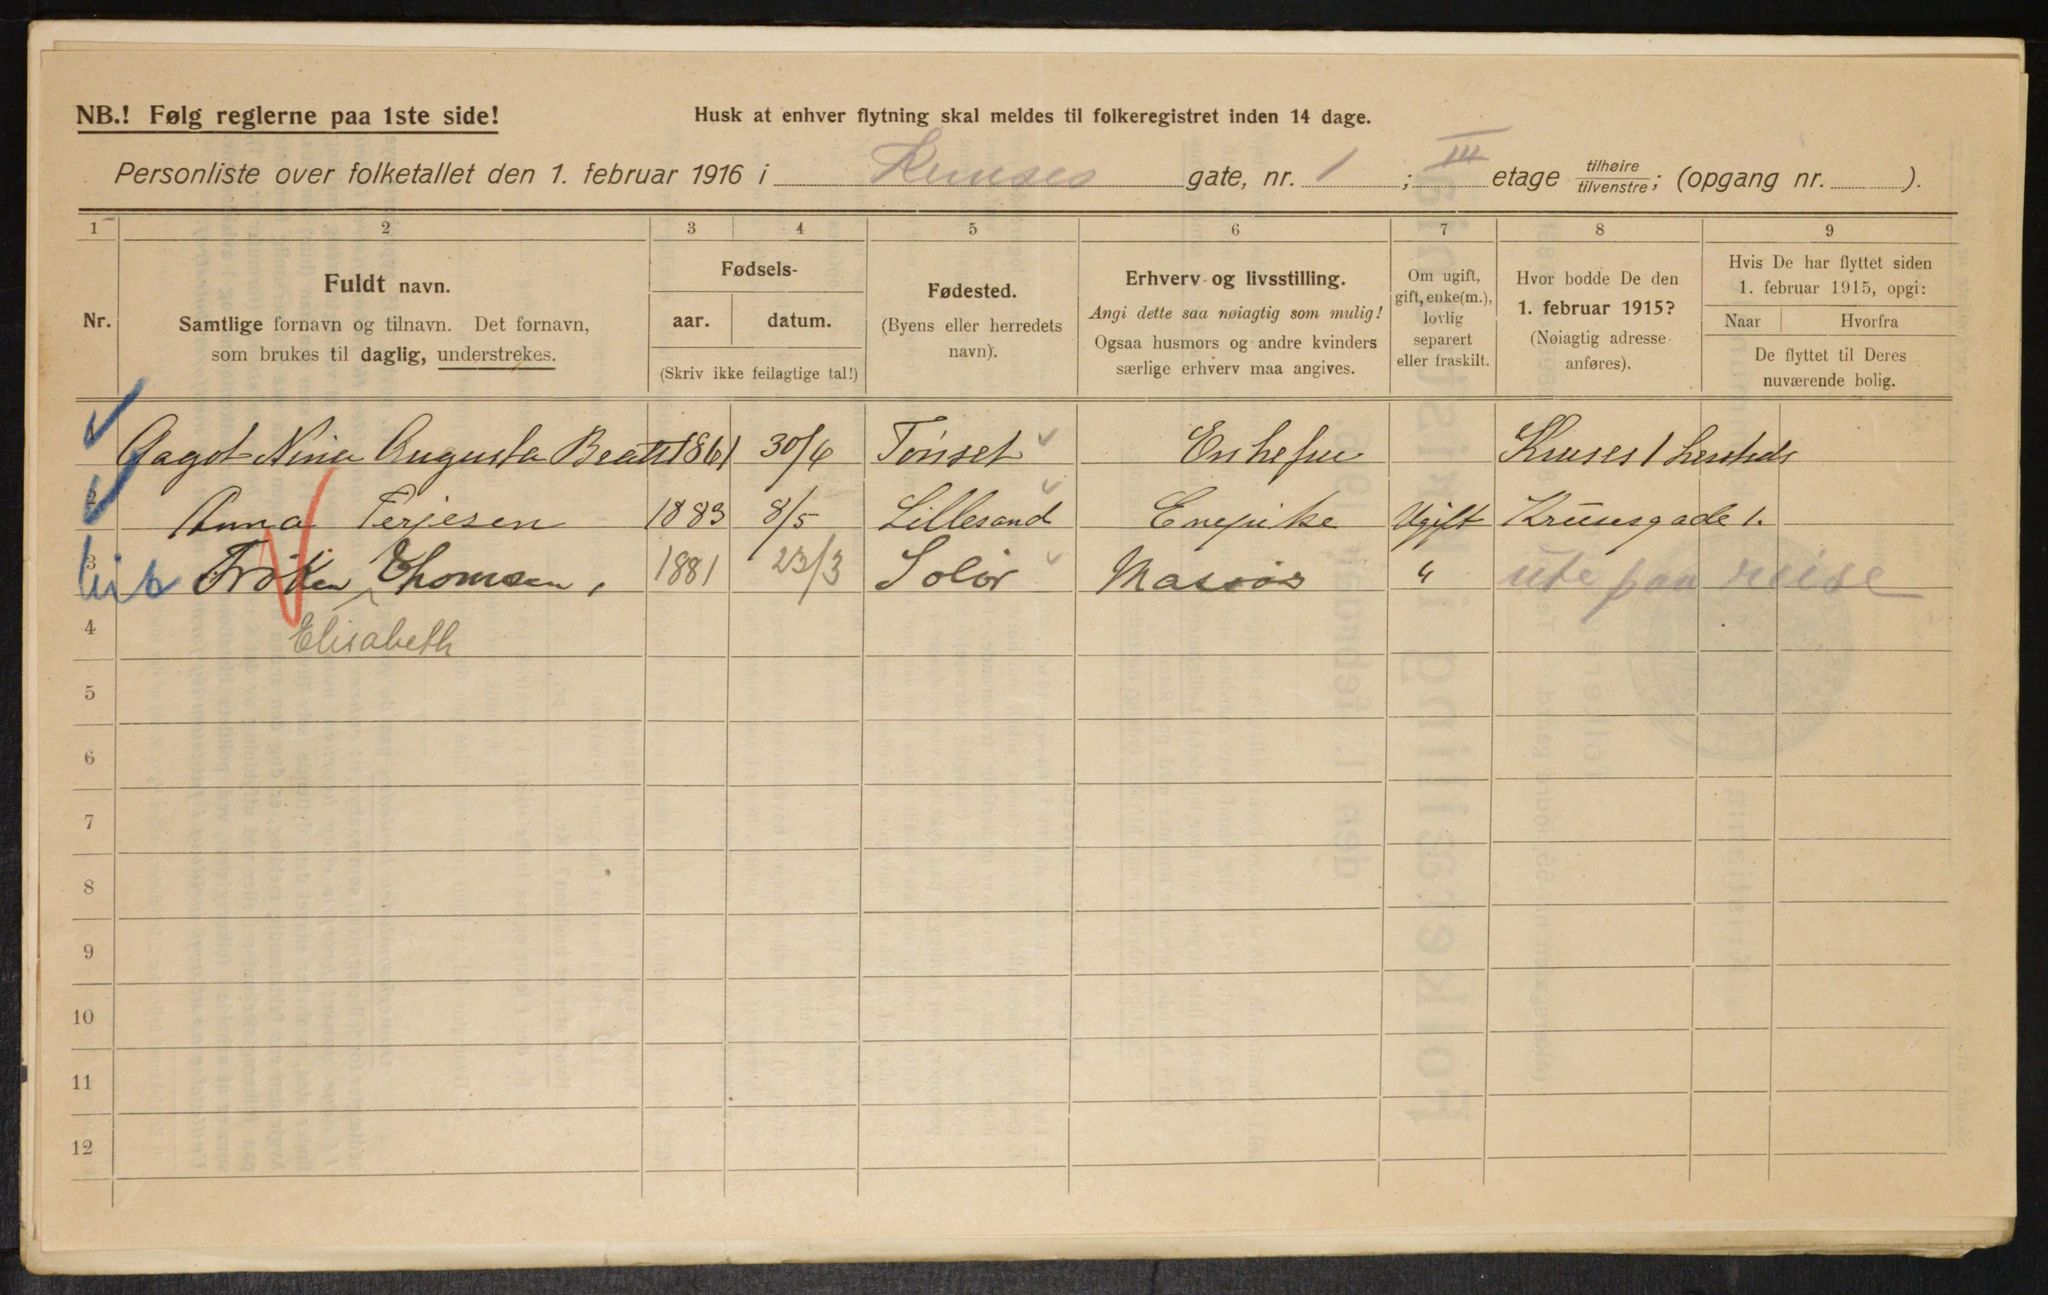 NB.! Følg reglerne paa 1ste side!
Husk at enhver flytning skal meldes til folkeregistret inden 14 dage.
Personliste over folketallet den 1. februar 1916 i Kruses gate, nr. 1 ; III etage tilhøire/tilvenstre; (opgang nr. ).
1 2 3 4 5 6 7 8 9
Nr.
Fuldt navn.
Samtlige fornavn og tilnavn. Det fornavn,
som brukes til daglig, understrekes.
Fødsels-
aar. datum.
(Skriv ikke feilagtige tal!)
Fødested.
(Byens eller herredets
navn).
Erhverv og livsstilling.
Angi dette saa nøiagtig som mulig!
Ogsaa husmors og andre kvinders
særlige erhverv maa angives.
Om ugift,
gift, enke(m.),
lovlig
separert
eller fraskilt.
Hvor bodde De den
1. februar 1915?
(Nøiagtig adresse
anføres).
Hvis De har flyttet siden
1. februar 1915, opgi:
Naar Hvorfra
De flyttet til Deres
nuværende bolig.
Aagot Nina Augusta 1861 30/6 Tønset Enkefru Kruses 1
2 Anna Terjesen 1883 8/5 Lillesand Enepike Ugift Krusesgade 1.
3 Frøken Thomsen, 1881 23/3 Solør Massøs " ute paa reise
4 Elisabeth
5
6
7
8
9
10
11
12